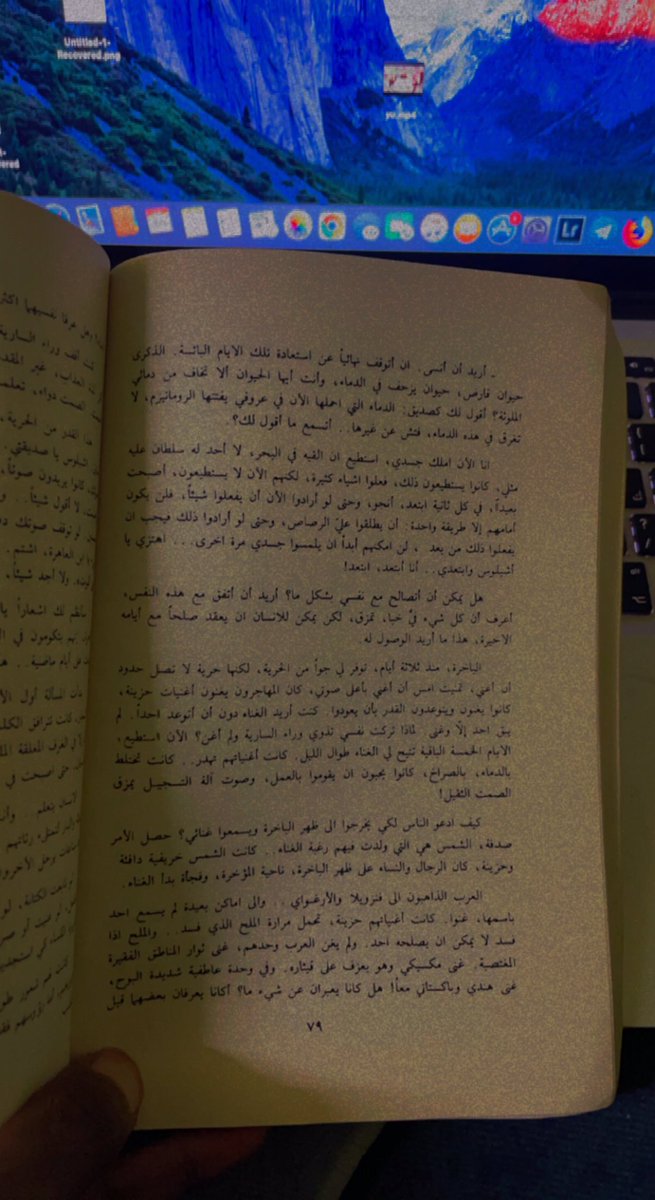 Untitled-1-
Recovered.png
yu.mp4
Lr
ـ أريد أن أنسى. ان أتوقف نهائياً عن استعادة تلك الايام البائسة. الذكرى
حيوان قارض، حيوان يزحف في الدماء، وأنت أيها الحيوان ألا تخاف من دمائي
الملوثة؟ أقول لك كصديق: الدماء التي احملها الآن في عروقي يفتتها الروماتيزم، لا
تغرق في هذه الدماء، فتش عن غيرها.. أتسمع ما أقول لك؟.
انا الآن املك جسدي، استطيع ان القيه في البحر، لا أحد له سلطان عليه
مثلي. كانوا يستطيعون ذلك، فعلوا اشياء كثيرة، لكنهم الآن لا يستطيعون، أصبحت
بعيداً، في كل ثانية ابتعد، أنجو، وحتى لو أرادوا الآن أن يفعلوا شيئاً، فلن يكون
أمامهم إلا طريقة واحدة: أن يطلقوا عليّ الرصاص، وحتى لو أرادوا ذلك فيجب ان
يفعلوا ذلك من بعد، لن امكنهم أبداً ان يلمسوا جسدي مرة اخرى... اهتزي يا
أشيلوس وابتعدي.. أنا أبتعد، ابتعد!
هل يمكن أن أتصالح مع نفسي بشكل ما؟ أريد أن أتفق مع هذه النفس،
أعرف أن كل شيء فيّ خبا، تمزق، لكن يمكن للانسان ان يعقد صلحاً مع أيامه
الاخيرة، هذا ما أريد الوصول له.
الباخرة، منذ ثلاثة أيام، توفر لي جواً من الحرية، لكنها حرية لا تصل حدود
ان أغني، تمنيت امس أن أغني بأعلى صوتي، كان المهاجرون يغنون أغنيات حزينة،
كانوا يغنون ويتوعدون القدر بأن يعودوا. كنت أريد الغناء دون أن أتوعد احداً. لم
يبق احد إلّا وغنى. لماذا تركت نفسي تذوي وراء السارية ولم أغن؟ الآن استطيع،
الايام الخمسة الباقية تتيح لي الغناء طوال الليل. كانت أغنياتهم تهدر.. كانت تختلط
بالدماء، بالصراخ، كانوا يحبون ان يقوموا بالعمل، وصوت آلة التسجيل يمزق
الصمت الثقيل!
كيف ادعو الناس لكي يخرجوا الى ظهر الباخرة ويسمعوا غنائي؟ حصل الأمر
صدفة، الشمس هي التي ولدت فيهم رغبة الغناء.. كانت الشمس خريفية دافئة
وحزينة، كان الرجال والنساء على ظهر الباخرة، ناحية المؤخرة، وفجأة بدأ الغناء.
العرب الذاهبون الى فنزويلا والأرغواي.. والى اماكن بعيدة لم يسمع احد
باسمها، غنوا. كانت أغنياتهم حزينة، تحمل مرارة الملح الذي فسد.. والملح اذا
فسد لا يمكن ان يصلحه احد. ولم يغن العرب وحدهم، غنى ثوار المناطق الفقيرة
المغتصبة. غنى مكسيكي وهو يعزف على قيثاره. وفي وحدة عاطفية شديدة البوح،
غنى هندي وباكستاني معاً! هل كانا يعبران عن شيء ما؟ أكانا يعرفان بعضهما قبل
٧٩